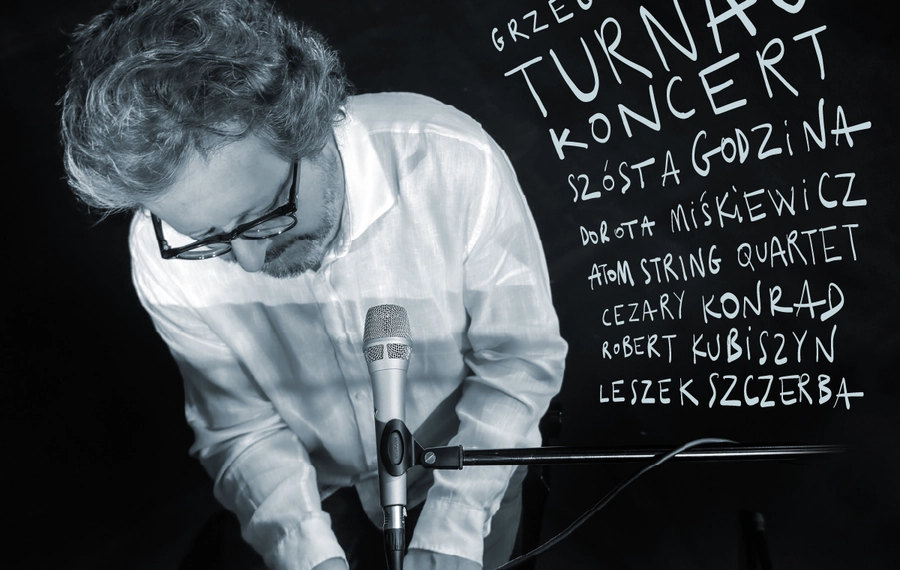 GRZEG
TURNAU
KONCERT
SZÓSTA GODZINA
DOROTA MIŚKIEWICZ
ATOM STRING QUARTET
CEZARY KONRAD
ROBERT KUBISZYN
LESZEK SZCZERBA